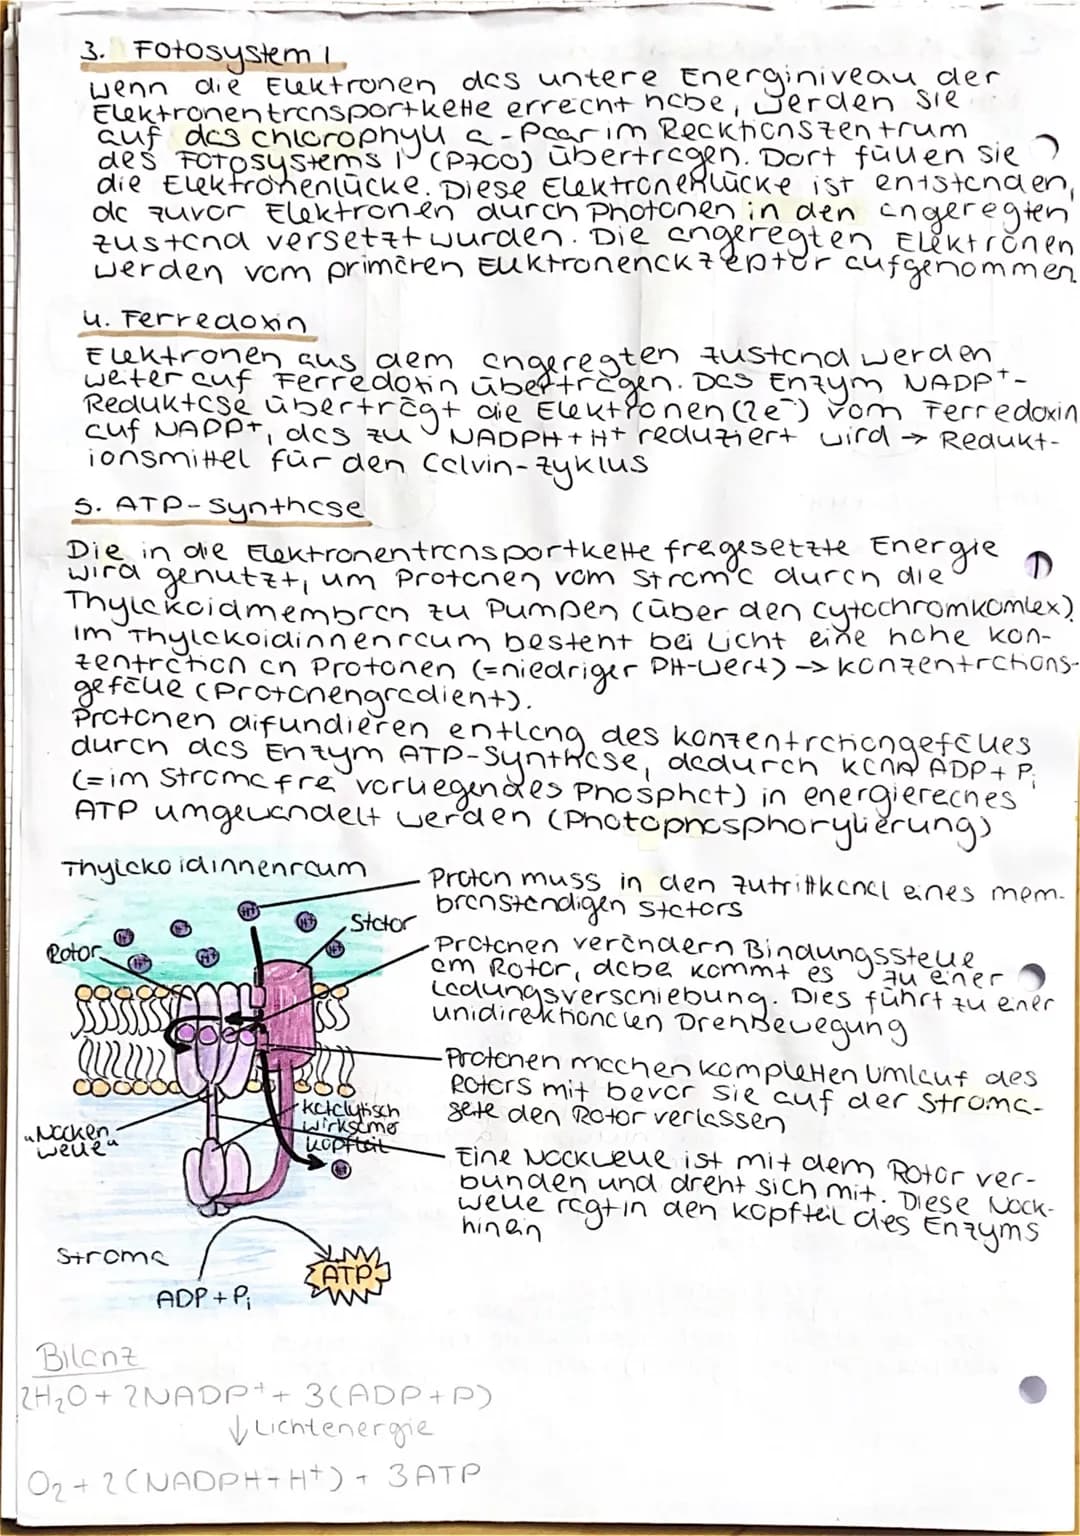 3. Fotosystem 1
wenn die Elektronen das untere Energiniveau der
Elektronentransportkette erreicht habe, werden sie
auf das chlorophyll a-Paar im Recktionszentrum
des Fotosystems 1 (P700) übertragen. Dort füllen sie
die Elektronenlücke. Diese Elektronenlücke ist entstanden,
da zuvor Elektronen durch Photonen in den angeregten
zustand versetzt wurden. Die angeregten Elektronen
werden vom primären Elektronenakzeptor aufgenommen
4. Ferredoxin
Elektronen aus dem angeregten zustand werden
weiter auf Ferredoxin übertragen. Das Enzym NADP⁺-
Reduktase überträgt die Elektronen (2e⁻) vom Ferredoxin
auf NADP+, das zu NADPH + H+ reduziert wird → Redukt-
ionsmittel für den Calvin-Zyklus
5. ATP-Synthase
Die in die Elektronentransportkette fregesetzte Energie
wird genutzt, um Protonen vom Stroma durch die
Thylakoidmembran zu Pumpen (über den cytochromkomlex)
Im Thylakoidinnenraum besteht bei Licht eine hohe kon-
zentration an Protonen (=niedriger PH-Wert) → konzentrations-
gefälle (Protonengradient).
Protonen difundieren entlang des konzentrationgefälles
durch das Enzym ATP-Synthase, dadurch kann ADP + Pi
(=im Stroma frei vorliegendes Phosphat) in energiereiches
ATP umgewandelt werden (Photophosphorylierung)
Thylakoidinnenraum
Proton muss in den zutrittkanal eines mem-
branständigen Stators
Stator
Rotor
H+
H+
H+
H+
H+
H+
H+
Protonen verändern Bindungsstelle
am Rotor, dabe kommt es zu einer
Ladungsverschiebung. Dies führt zu einer
unidirektionalen Drehbewegung
Protonen machen kompletten Umlauf des
Rotors mit bevor sie auf der Stroma-
seite den Rotor verlassen
katalytisch
wirksamer
kopfteil
"Nocken
welle"
H+
Eine Nockwelle ist mit dem Rotor ver-
bunden und dreht sich mit. Diese Nock-
welle ragt in den kopfteil des Enzyms
hinein
Stroma
ATP
ADP + Pi
Bilanz
2H₂O + 2NADP⁺ + 3(ADP+P)
↓ Lichtenergie
O₂ + 2(NADPH+H⁺) + 3ATP